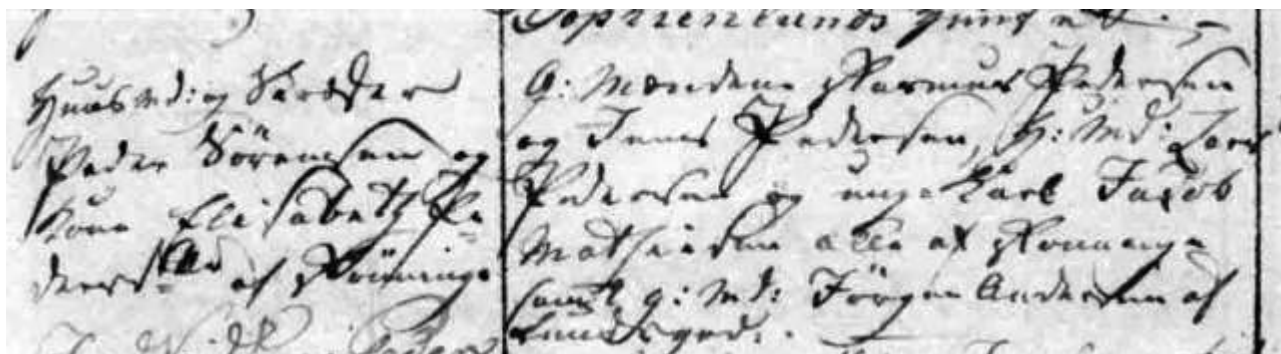 Huusmd: og Skræder
Peder Sörensen og
Kone Elisabeth Pe-
dersdtr af Rönninge
Sophienlunds
G: Mændene Rasmus Pedersen
og Jens Pedersen, H: Md: Lars
Pedersen og unge Karl Jacob
Mathiesen alle af Rönninge
samt g: Md: Jörgen Andersen af